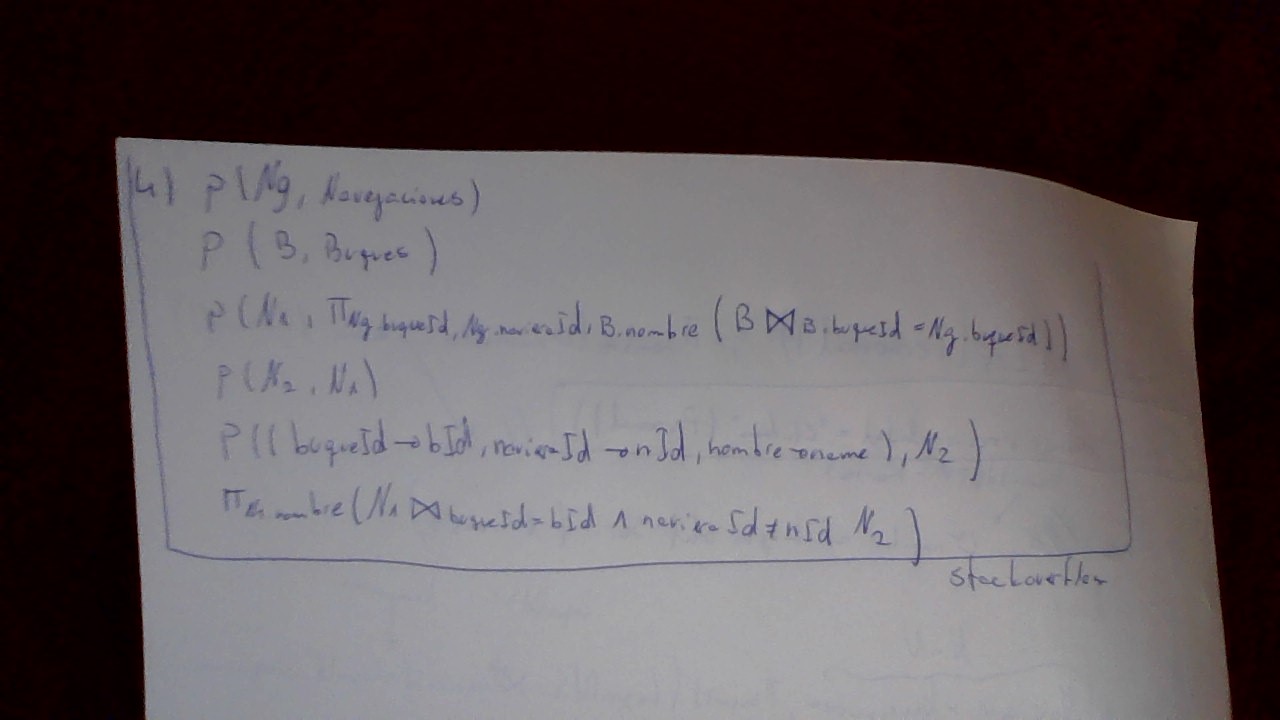 4) ρ (Ng, Navegaciones)
ρ ( B, Buques )
ρ (N1, π Ng.buqueId, Ng.navieraId, B.nombre ( B ⋈ B.buqueId = Ng.buqueId ))
ρ (N2, N1)
ρ (( buqueId → bId, navieraId → nId, nombre → name ), N2 )
π nombre (N1 ⋈ buqueId = bId ∧ navieraId ≠ nId N2 )
stackoverflow